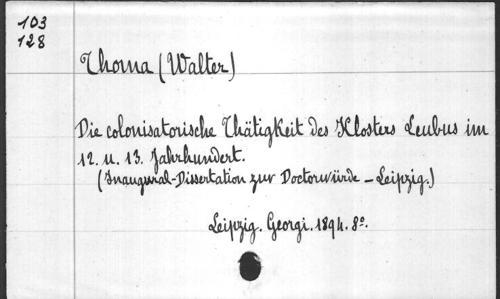 103
128
Thoma (Walter)
Die colonisatorische Thätigkeit des Klosters Leubus im
12. u. 13. Jahrhundert.
(Inaugural-Dissertation zur Doctorwürde - Leipzig.)
Leipzig. Georgi. 1894. 8º.